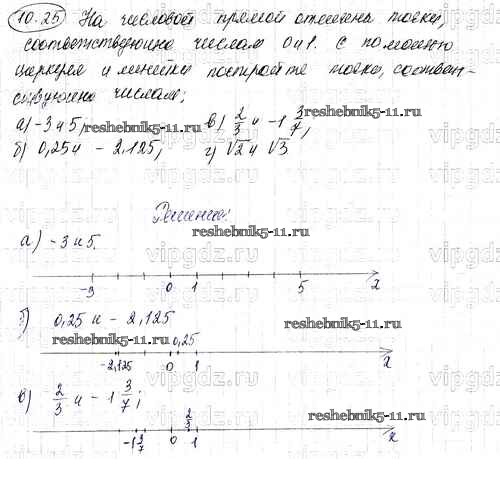 10.25 На числовой прямой отмечены точки,
соответствующие числам 0 и 1. С помощью
циркуля и линейки постройте точки, соответ-
ствующие числам:
а) -3 и 5; в) 2/3 и -1 3/7;
б) 0,25 и -2,125; г) √2 и √3
reshebnik5-11.ru reshebnik5-11.ru
Решение:
reshebnik5-11.ru
а) -3 и 5.
-3 0 1 5 x
б) 0,25 и -2,125
reshebnik5-11.ru 0,25 reshebnik5-11.ru
-2,125 0 1 x
в) 2/3 и -1 3/7;
2/3 reshebnik5-11.ru
-1 3/7 0 1 x
vipgdz.ru